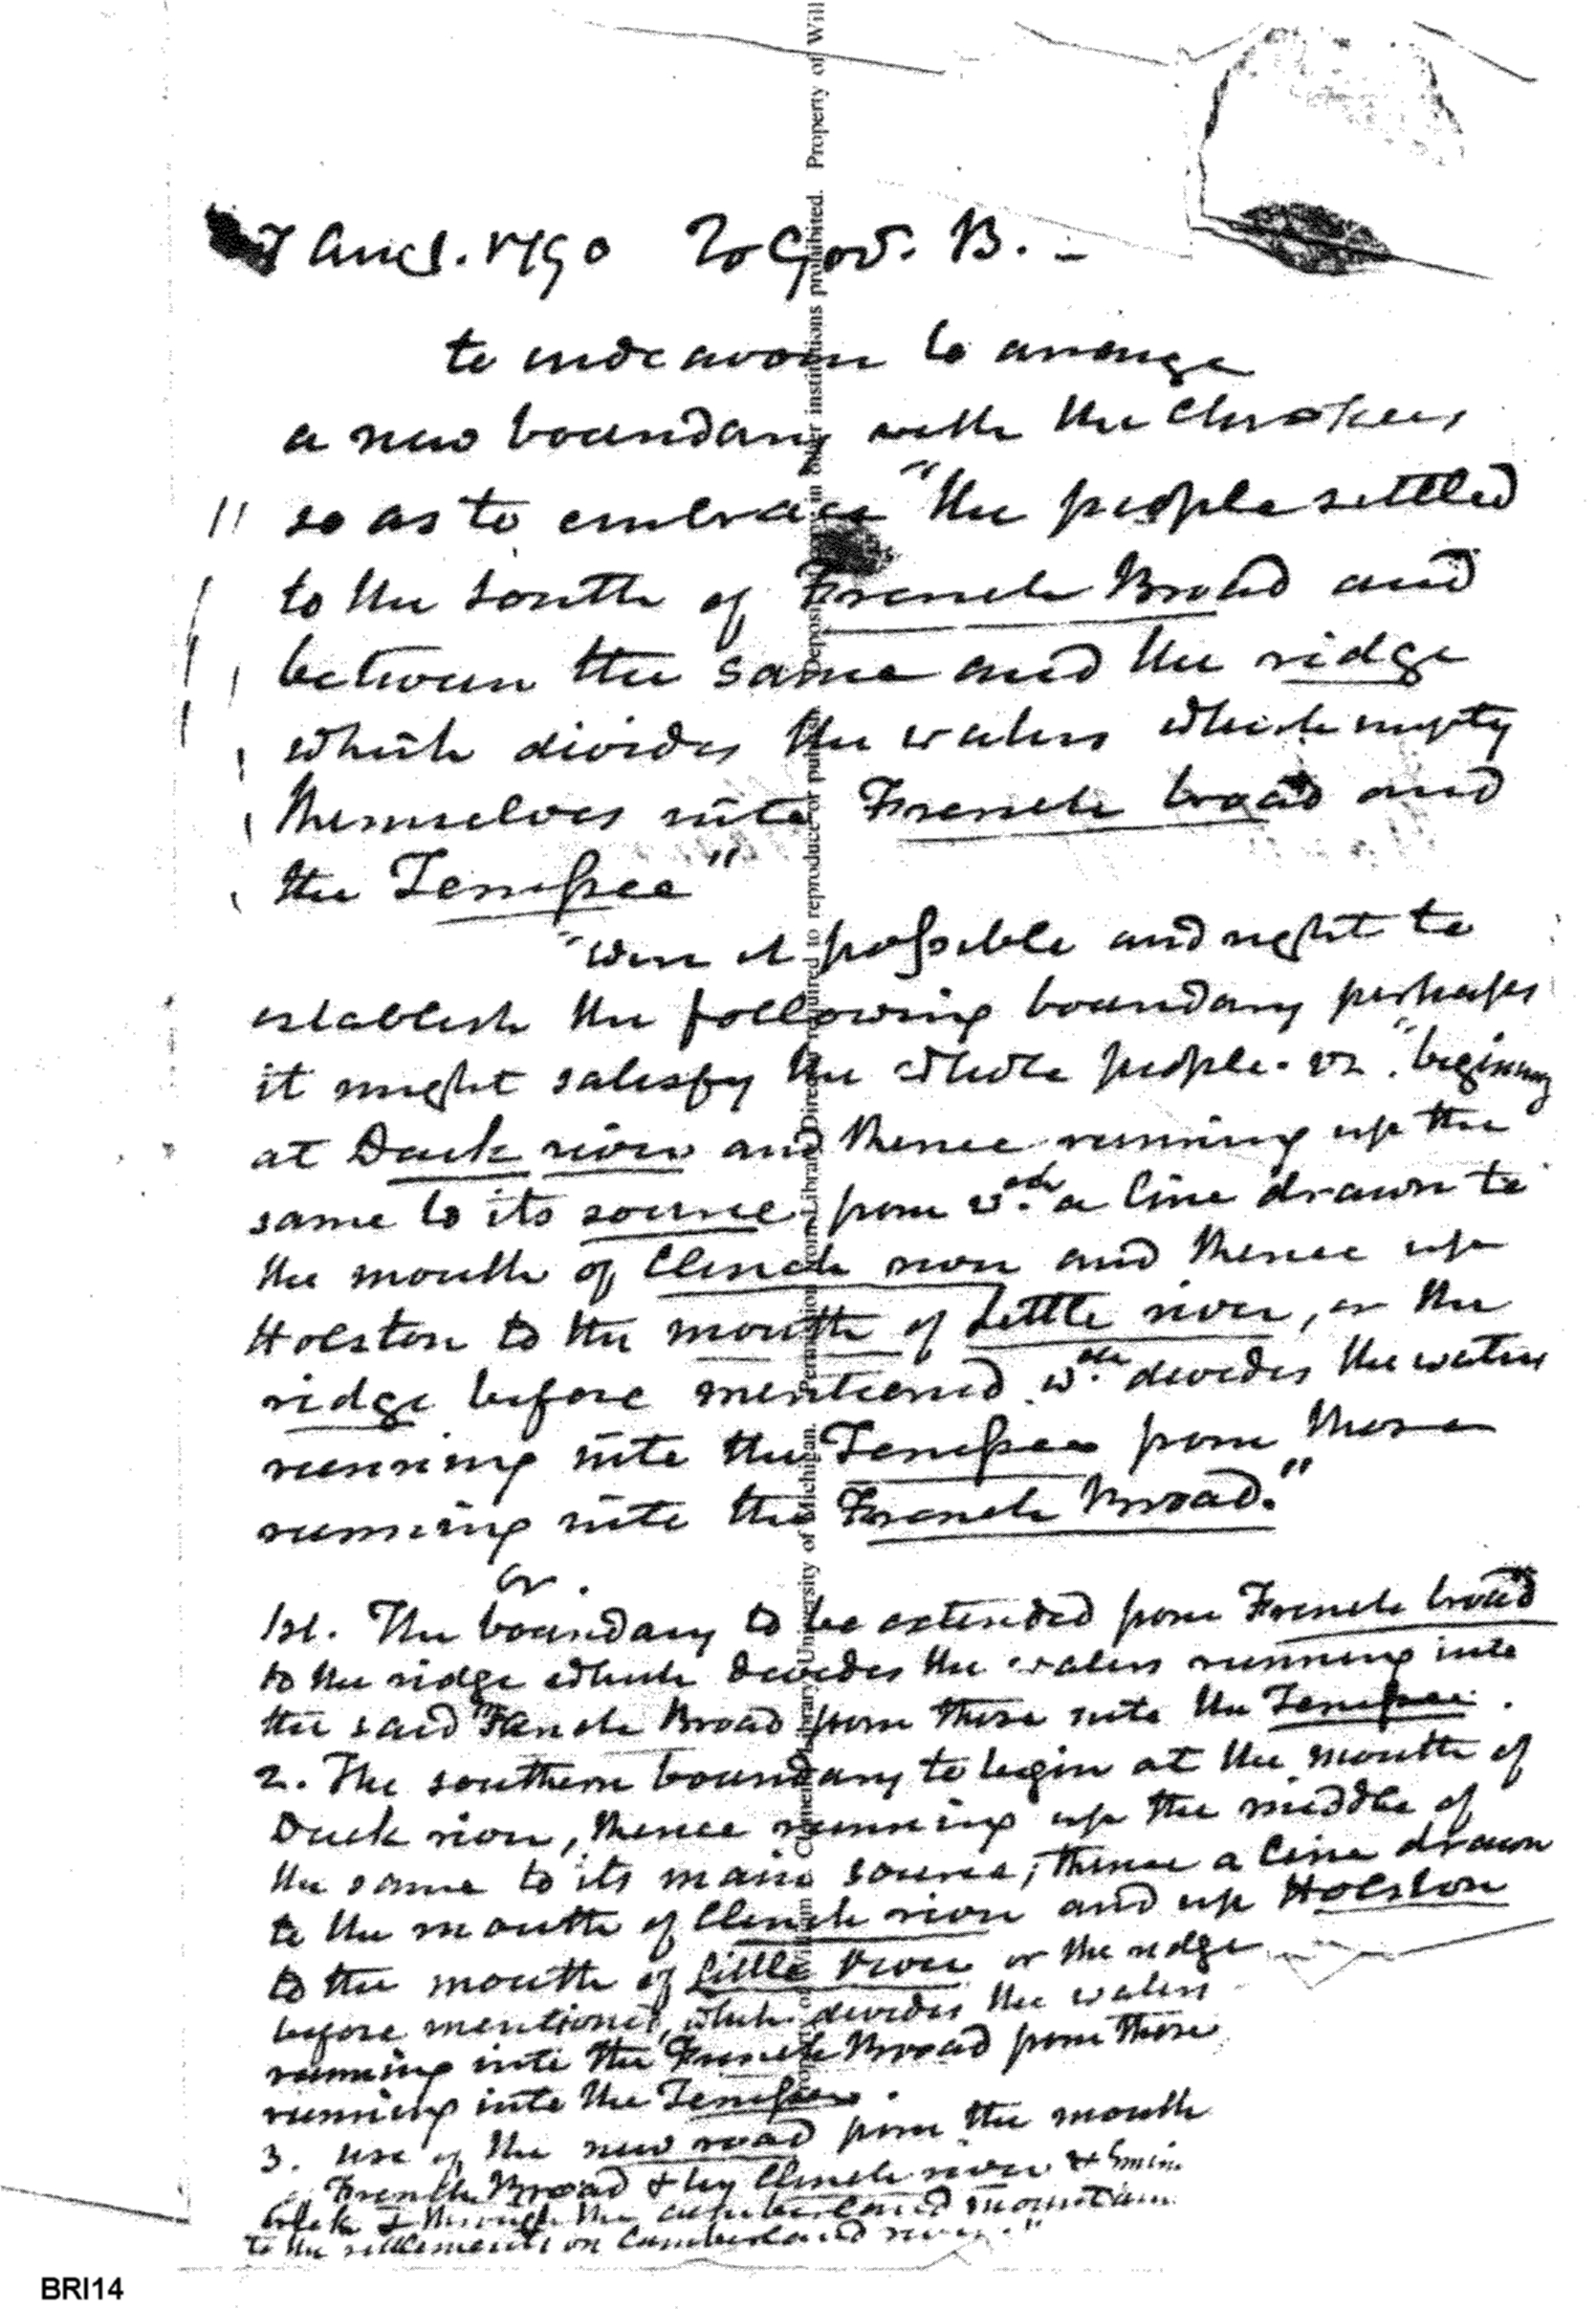 7 Augt. 1790 To Gov. B. -
to endeavour to arrange
a new boundary with the Cherokees
so as to embrace "the people settled
to the south of French Broad and
between the same and the ridge
which divides the waters which empty
themselves into French broad and
the Tennessee"
"Were it possible and right to
establish the following boundary perhaps
it might satisfy the whole people. viz. "beginning
at Duck river and thence running up the
same to its source. from wch a line drawn to
the mouth of Clinch river and thence up
Holston to the mouth of Little river, or the
ridge before mentioned wch devides the waters
running into the Tennessee from those
running into the French Broad."
or.
1st. The boundary to be extended from French broad
to the ridge which devides the waters running into
the said French Broad from those into the Tennessee.
2. The southern boundary to begin at the mouth of
Duck river, thence running up the middle of
the same to its main source; thence a line drawn
to the mouth of Clinch river and up Holston
to the mouth of Little River or the ridge
before mentioned, which devides the waters
running into the French Broad from those
running into the Tennessee.
3. use of the new road from the mouth
French Broad & by Clinch river &
Creek & through the Cumberland mountain
to the settlements on Cumberland river."
Property of William Clements Library University of Michigan. Permission from Library Director required to reproduce or publish. Deposit in other institutions prohibited. Property of Will
BRI14